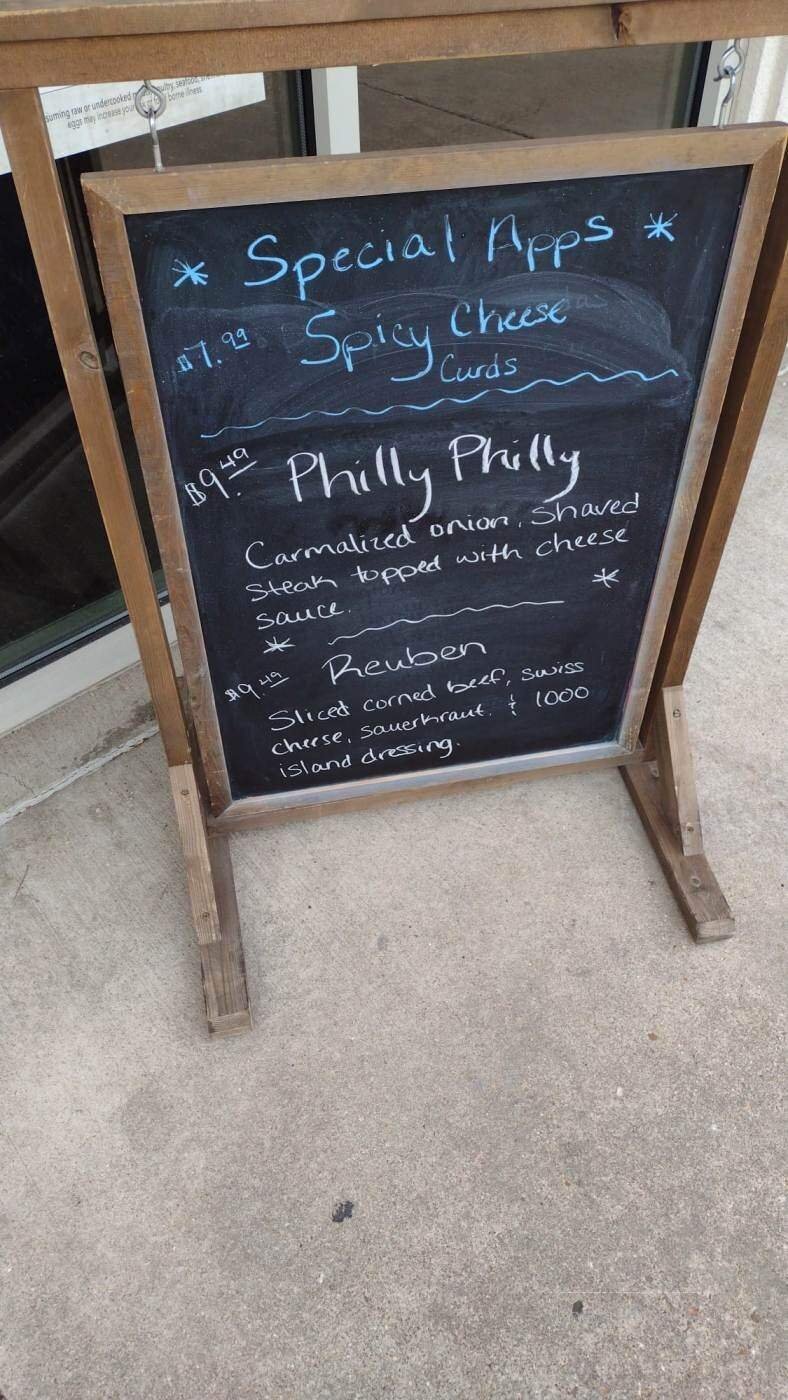 suming raw or undercooked
eggs may increase your borne illness
* Special Apps *
$7.99 Spicy Cheese
Curds
$9.49 Philly Philly
Carmalized onion, Shaved
Steak topped with cheese
sauce.
$9.49 Reuben
Sliced corned beef, swiss
cheese, sauerkraut. & 1000
island dressing.